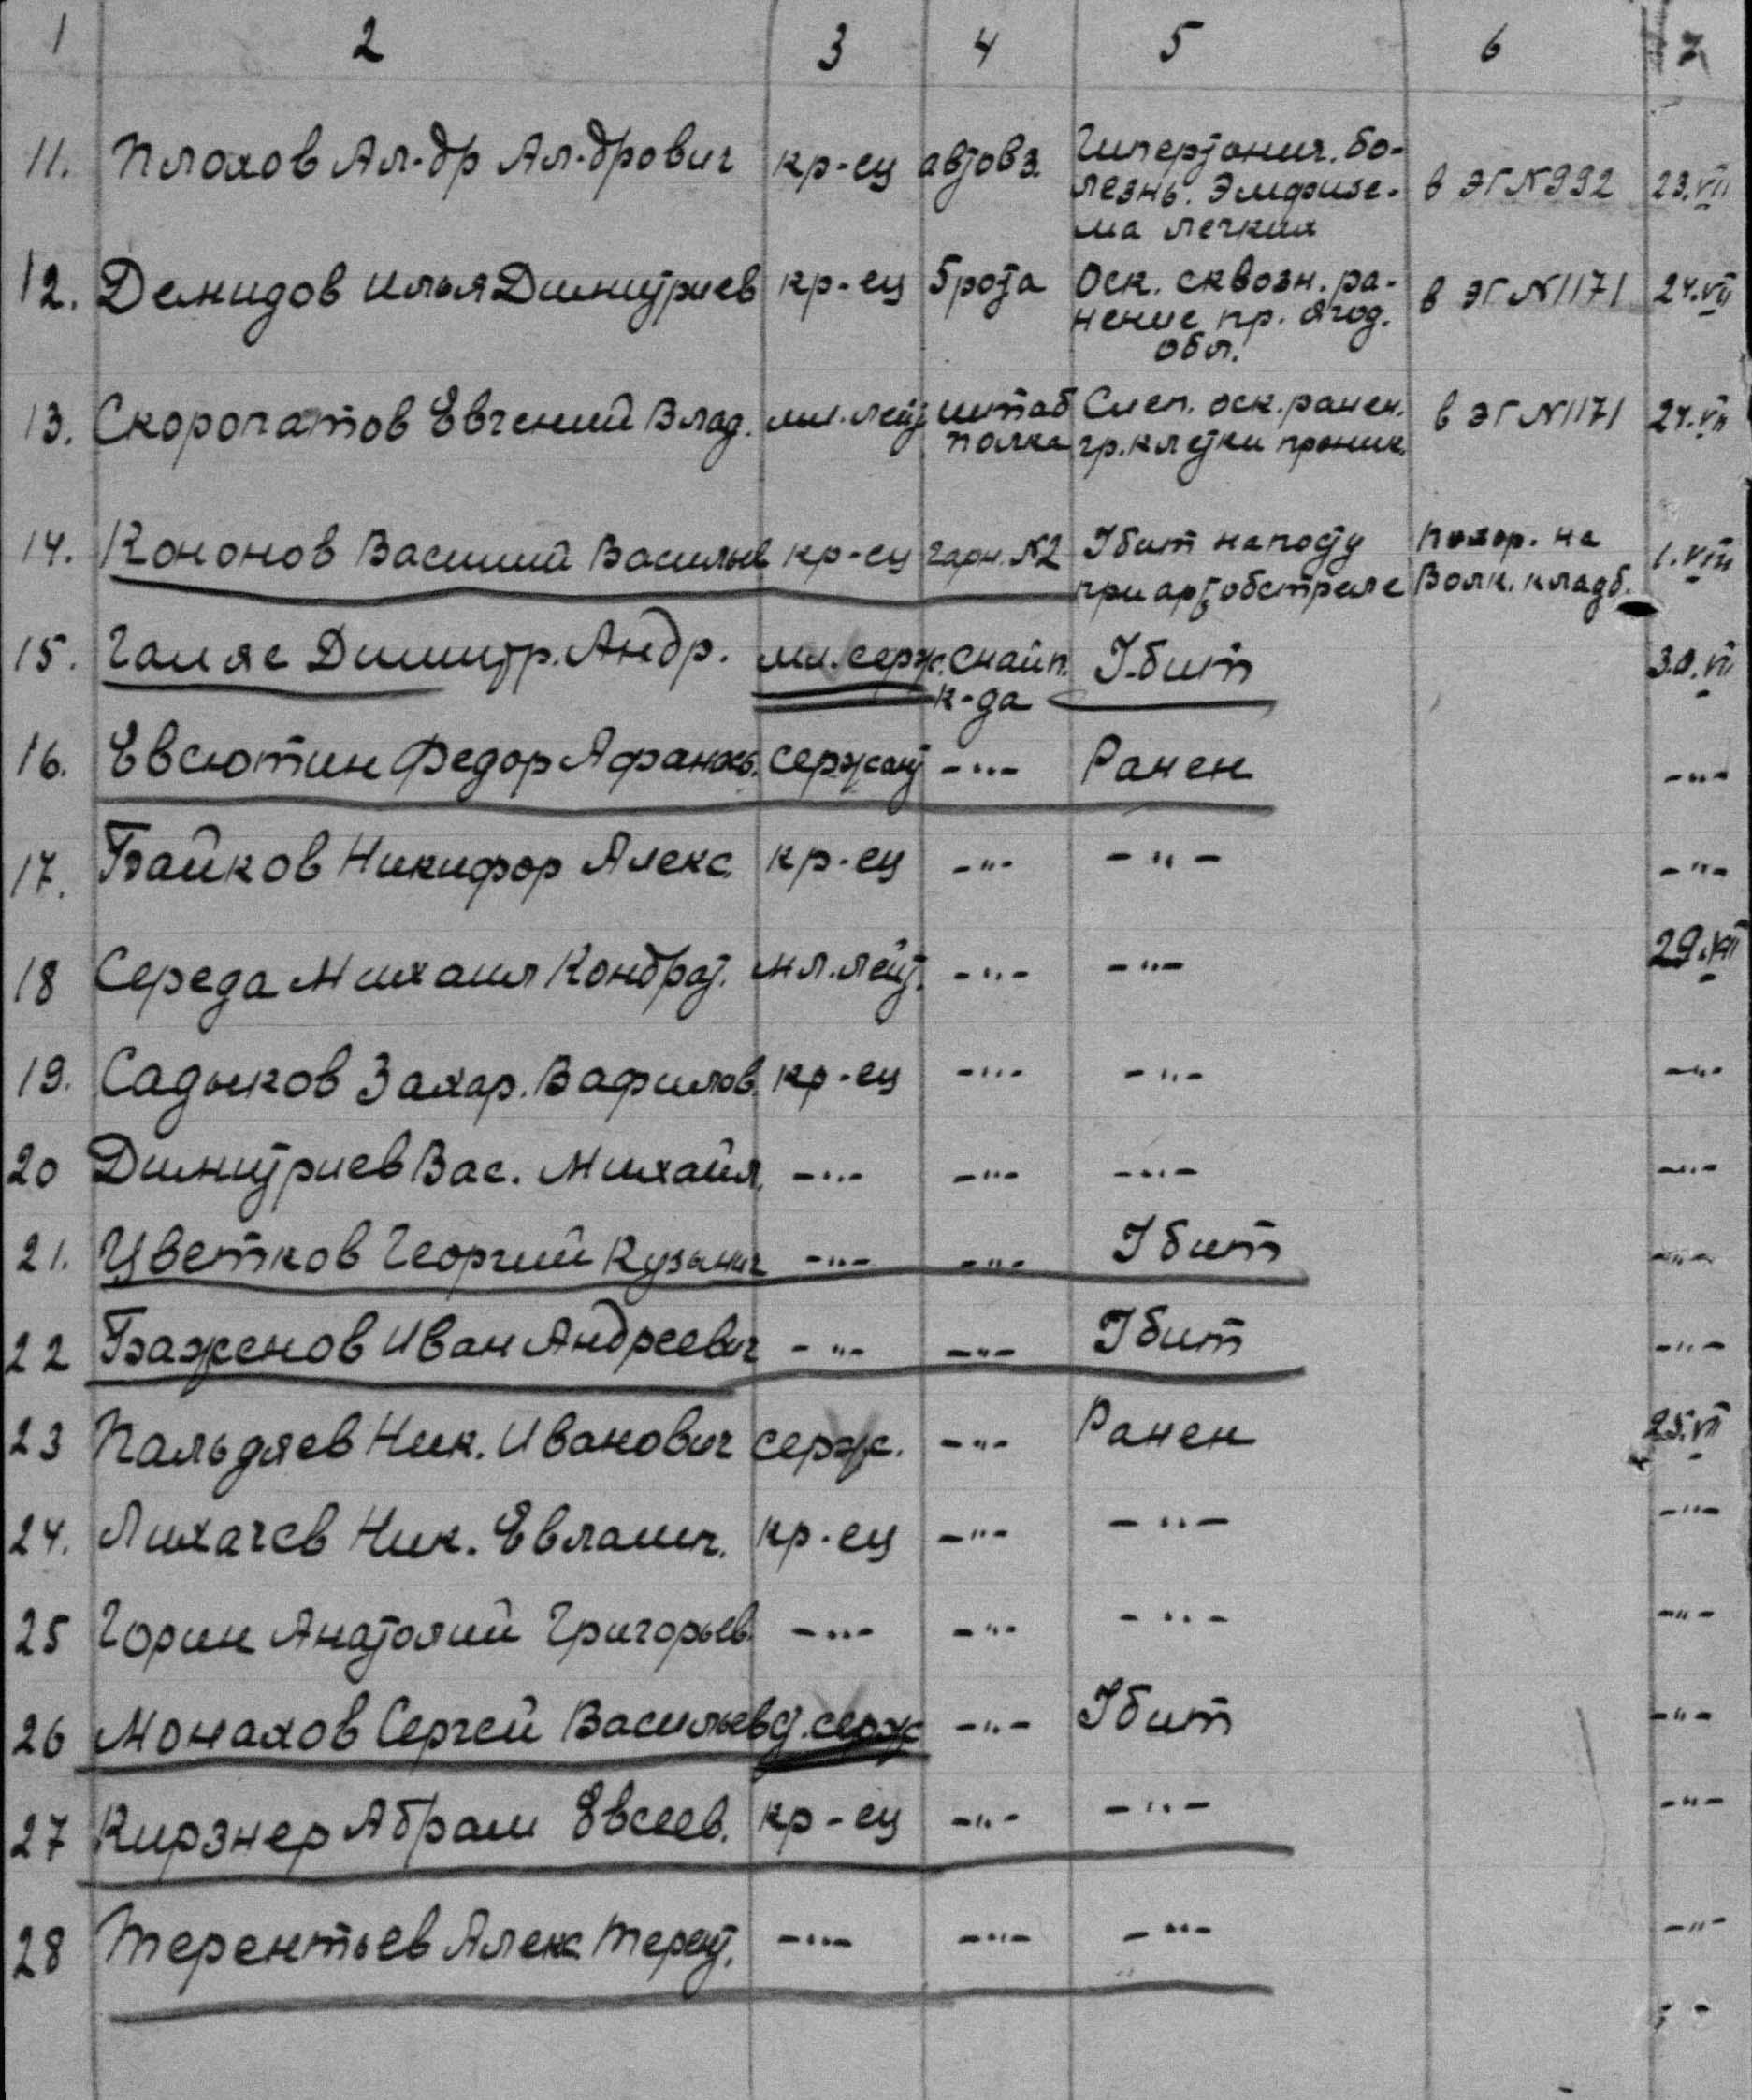 1 2 3 4 5 6 7
11. Плохов Ал-др Ал-дрович кр-ец автовз. Гипертонич. бо- в ЭГ №992 23.VII
лезнь. Эмфизе-
ма легких
12. Демидов Илья Димитриев кр-ец 5 рота Оск. сквозн. ра- в ЭГ №1171 24.VII
нение пр. ягод.
обл.
13. Скоропатов Евгений Влад. мл. лейт штаб Слеп. оск. ранен. в ЭГ №1171 24.VII
полка гр. клетки проник.
14. Кононов Василий Васильев кр-ец гарн. №2 Убит на посту Похор. на 1.VIII
при артобстреле Волк. кладб.
15. Галяс Димитр. Андр. мл. серж. снайп. Убит 30.VII
к-да
16. Евсютин Федор Афанас. сержант -"- Ранен -"-
17. Байков Никифор Алекс. кр-ец -"- -"- -"-
18 Середа Михаил Кондрат. мл. лейт. -"- -"- 29.VII
19. Садыков Захар. Вафилов. кр-ец -"- -"- -"-
20 Димитриев Вас. Михайл. -"- -"- -"- -"-
21. Цветков Георгий Кузьмич -"- -"- Убит -"-
22 Баженов Иван Андреевич -"- -"- Убит -"-
23 Пальдяев Ник. Иванович серж. -"- Ранен 25.VII
24. Лихачев Ник. Евламп. кр-ец -"- -"- -"-
25 Горин Анатолий Григорьев. -"- -"- -"- -"-
26 Монахов Сергей Васильев ст. серж -"- Убит -"-
27 Кирзнер Абрам Евсеев. кр-ец -"- -"- -"-
28 Терентьев Алекс Терент. -"- -"- -"- -"-